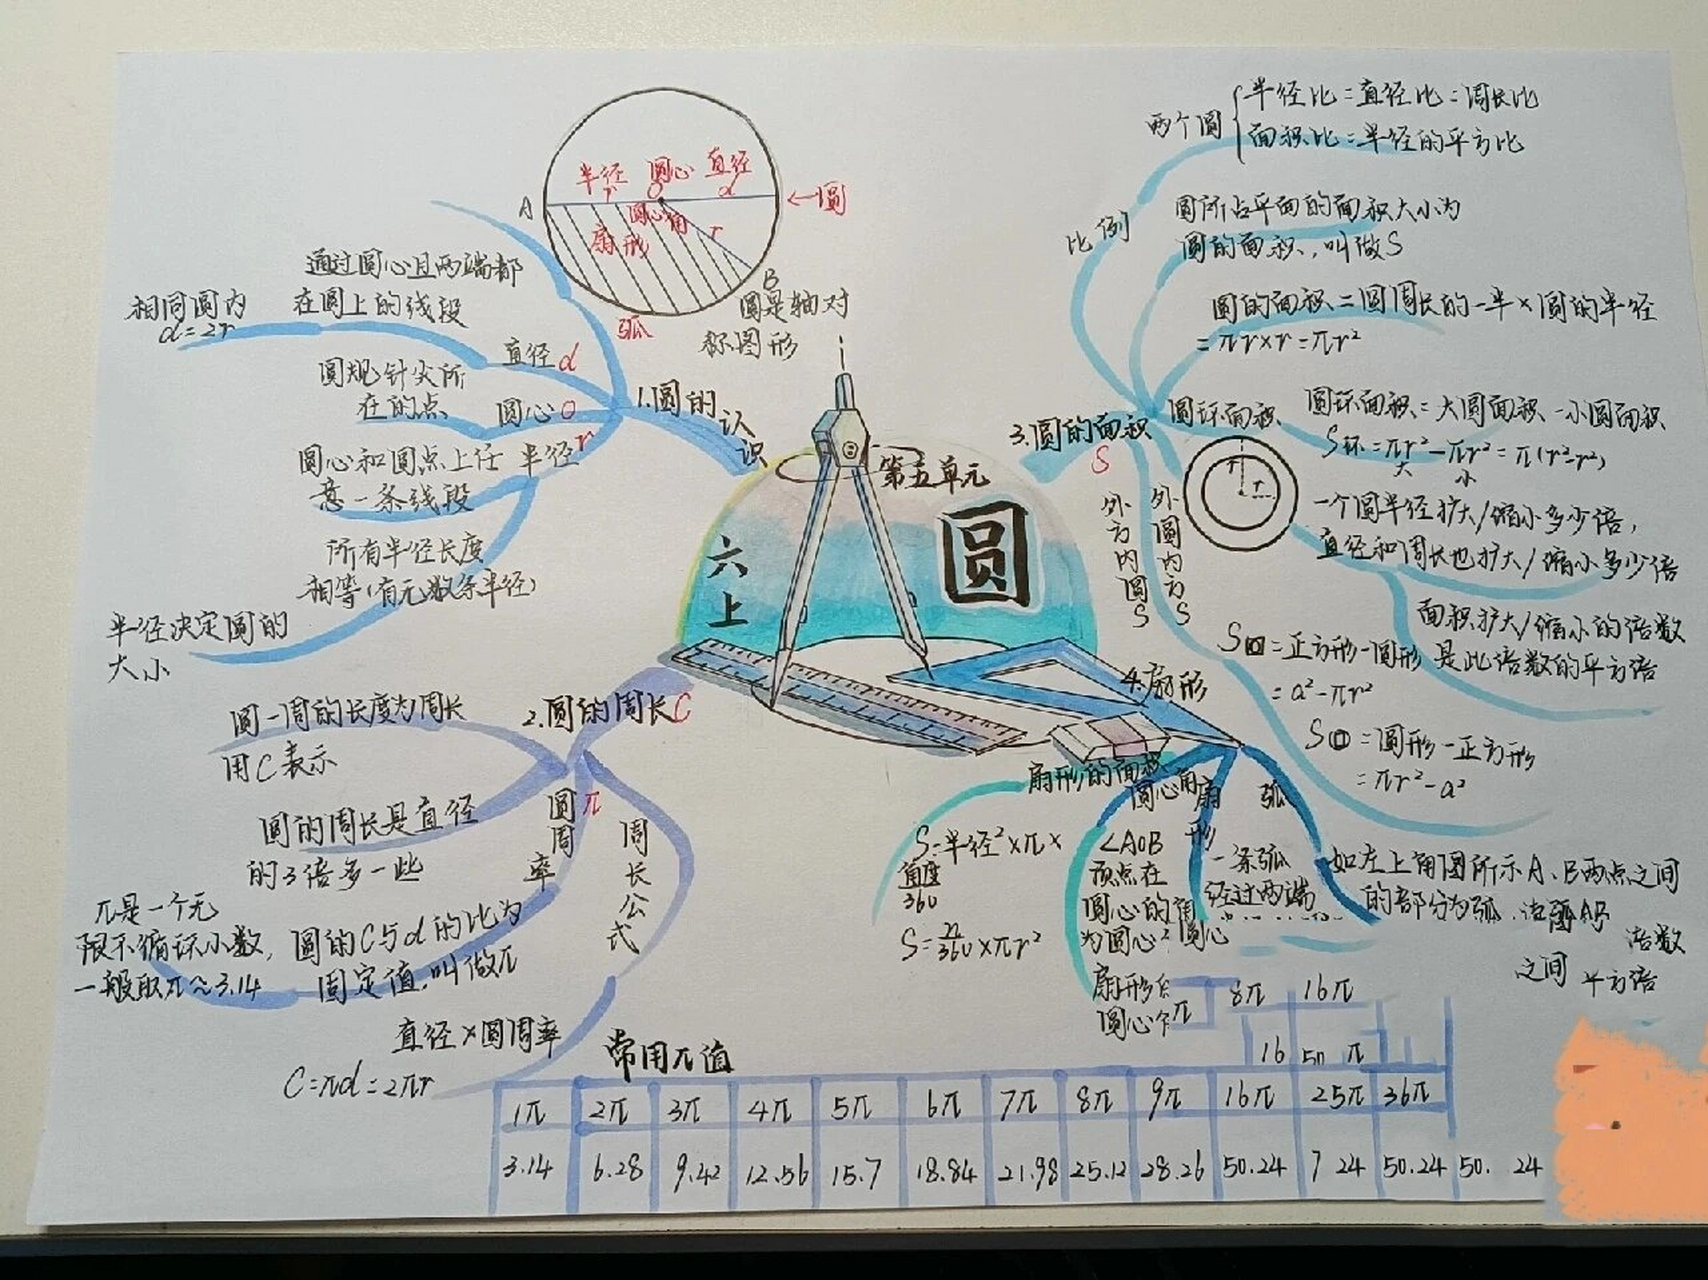 半径 圆心 直径
r O d
←圆
A
圆心角
扇形
r
B
弧
圆是轴对
称图形
第五单元
圆
六
上
1.圆的
认
识
通过圆心且两端都
在圆上的线段
相同圆内
d=2r
直径d
圆规针尖所
在的点
圆心O
圆心和圆点上任
意一条线段
半径r
所有半径长度
相等(有无数条半径)
半径决定圆的
大小
2.圆的周长C
圆一周的长度为周长
用C表示
圆的周长是直径
的3倍多一些
圆
周
率
π
π是一个无
限不循环小数,
一般取π≈3.14
圆的C与d的比为
固定值,叫做π
周
长
公
式
直径×圆周率
C=πd=2πr
3.圆的面积
S
比例
两个圆
半径比=直径比=周长比
面积比=半径的平方比
圆所占平面的面积大小为
圆的面积,叫做S
圆的面积=圆周长的一半×圆的半径
=πr×r=πr²
圆环面积
圆环面积=大圆面积-小圆面积
S环=πr²-πr²=π(r²-r²)
大 小
r r
一个圆半径扩大/缩小多少倍,
直径和周长也扩大/缩小多少倍
面积扩大/缩小的倍数
是此倍数的平方倍
外方内圆S
外圆内方S
S=正方形-圆形
=a²-πr²
S=圆形-正方形
=πr²-a²
4.扇形
扇形的面积
S=半径²×π×
角度
360
S=n/360×πr²
圆心角
∠AOB
顶点在
圆心的
为圆心
扇形
圆心
扇
形
一条弧
经过两端
圆心
弧
如左上角图所示A、B两点之间
的部分为弧,
AB
倍数
之间 平方倍
π 8π 16π
16 50 π
常用π值
1π 2π 3π 4π 5π 6π 7π 8π 9π 16π 25π 36π
3.14 6.28 9.42 12.56 15.7 18.84 21.98 25.12 28.26 50.24 7 24 50.24 50. 24